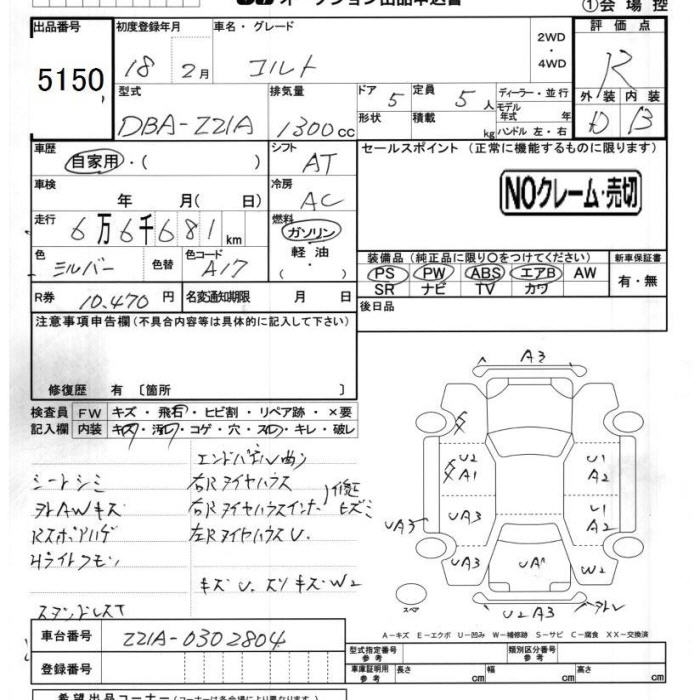 オークション出品申込書
①会場控
出品番号 初度登録年月 車名・グレード 2WD ・ 4WD 評価点
5150 18 2月 コルト R
型式 排気量 ドア 5 定員 5人 ディーラー・並行 外装 内装
DBA-Z21A 1300cc 形状 積載 kg モデル年式 年 D B
ハンドル 左・右
車歴 シフト AT セールスポイント(正常に機能するものに限ります)
自家用・( )
車検 年 月( 日) 冷房 AC NOクレーム・売切
走行 6万6千681km 燃料 ガソリン・軽油・( )
色 シルバー 色替 色コード A17 装備品(純正品に限り○をつけてください) 新車保証書
PS PW ABS エアB AW 有・無
SR ナビ TV カワ
R券 10,470円 名変通知期限 月 日 後日品
注意事項申告欄(不具合内容等は具体的に記入して下さい)
修復歴 有 〔箇所 〕
検査員 FW キズ・飛石・ヒビ割・リペア跡・×要
記入欄 内装 キズ・汚れ・コゲ・穴・スレ・キレ・破レ
エンドパネル曲り
シートシミ 右Rタイヤハウス
外AWキズ 右Rタイヤハウスインナー 修正ヒズミ
Rスポイハゲ 左RタイヤハウスU.
Hライトクモリ
キズU. スリキズW2
スタンドレスT
A3
U2 A1 U1 A2
UA3 UA3 U1 A2
UA3 UA1 W2
スペア U2A3 外レ
A-キズ E-エクボ U-凹み W-補修跡 S-サビ C-腐食 XX-交換済
車台番号 Z21A-0302804
型式指定番号 参考 類別区分番号 参考
登録番号 車庫証明用 参考 長さ cm 幅 cm 高さ cm
希望出品コーナー(コーナーは各会場により異なります)